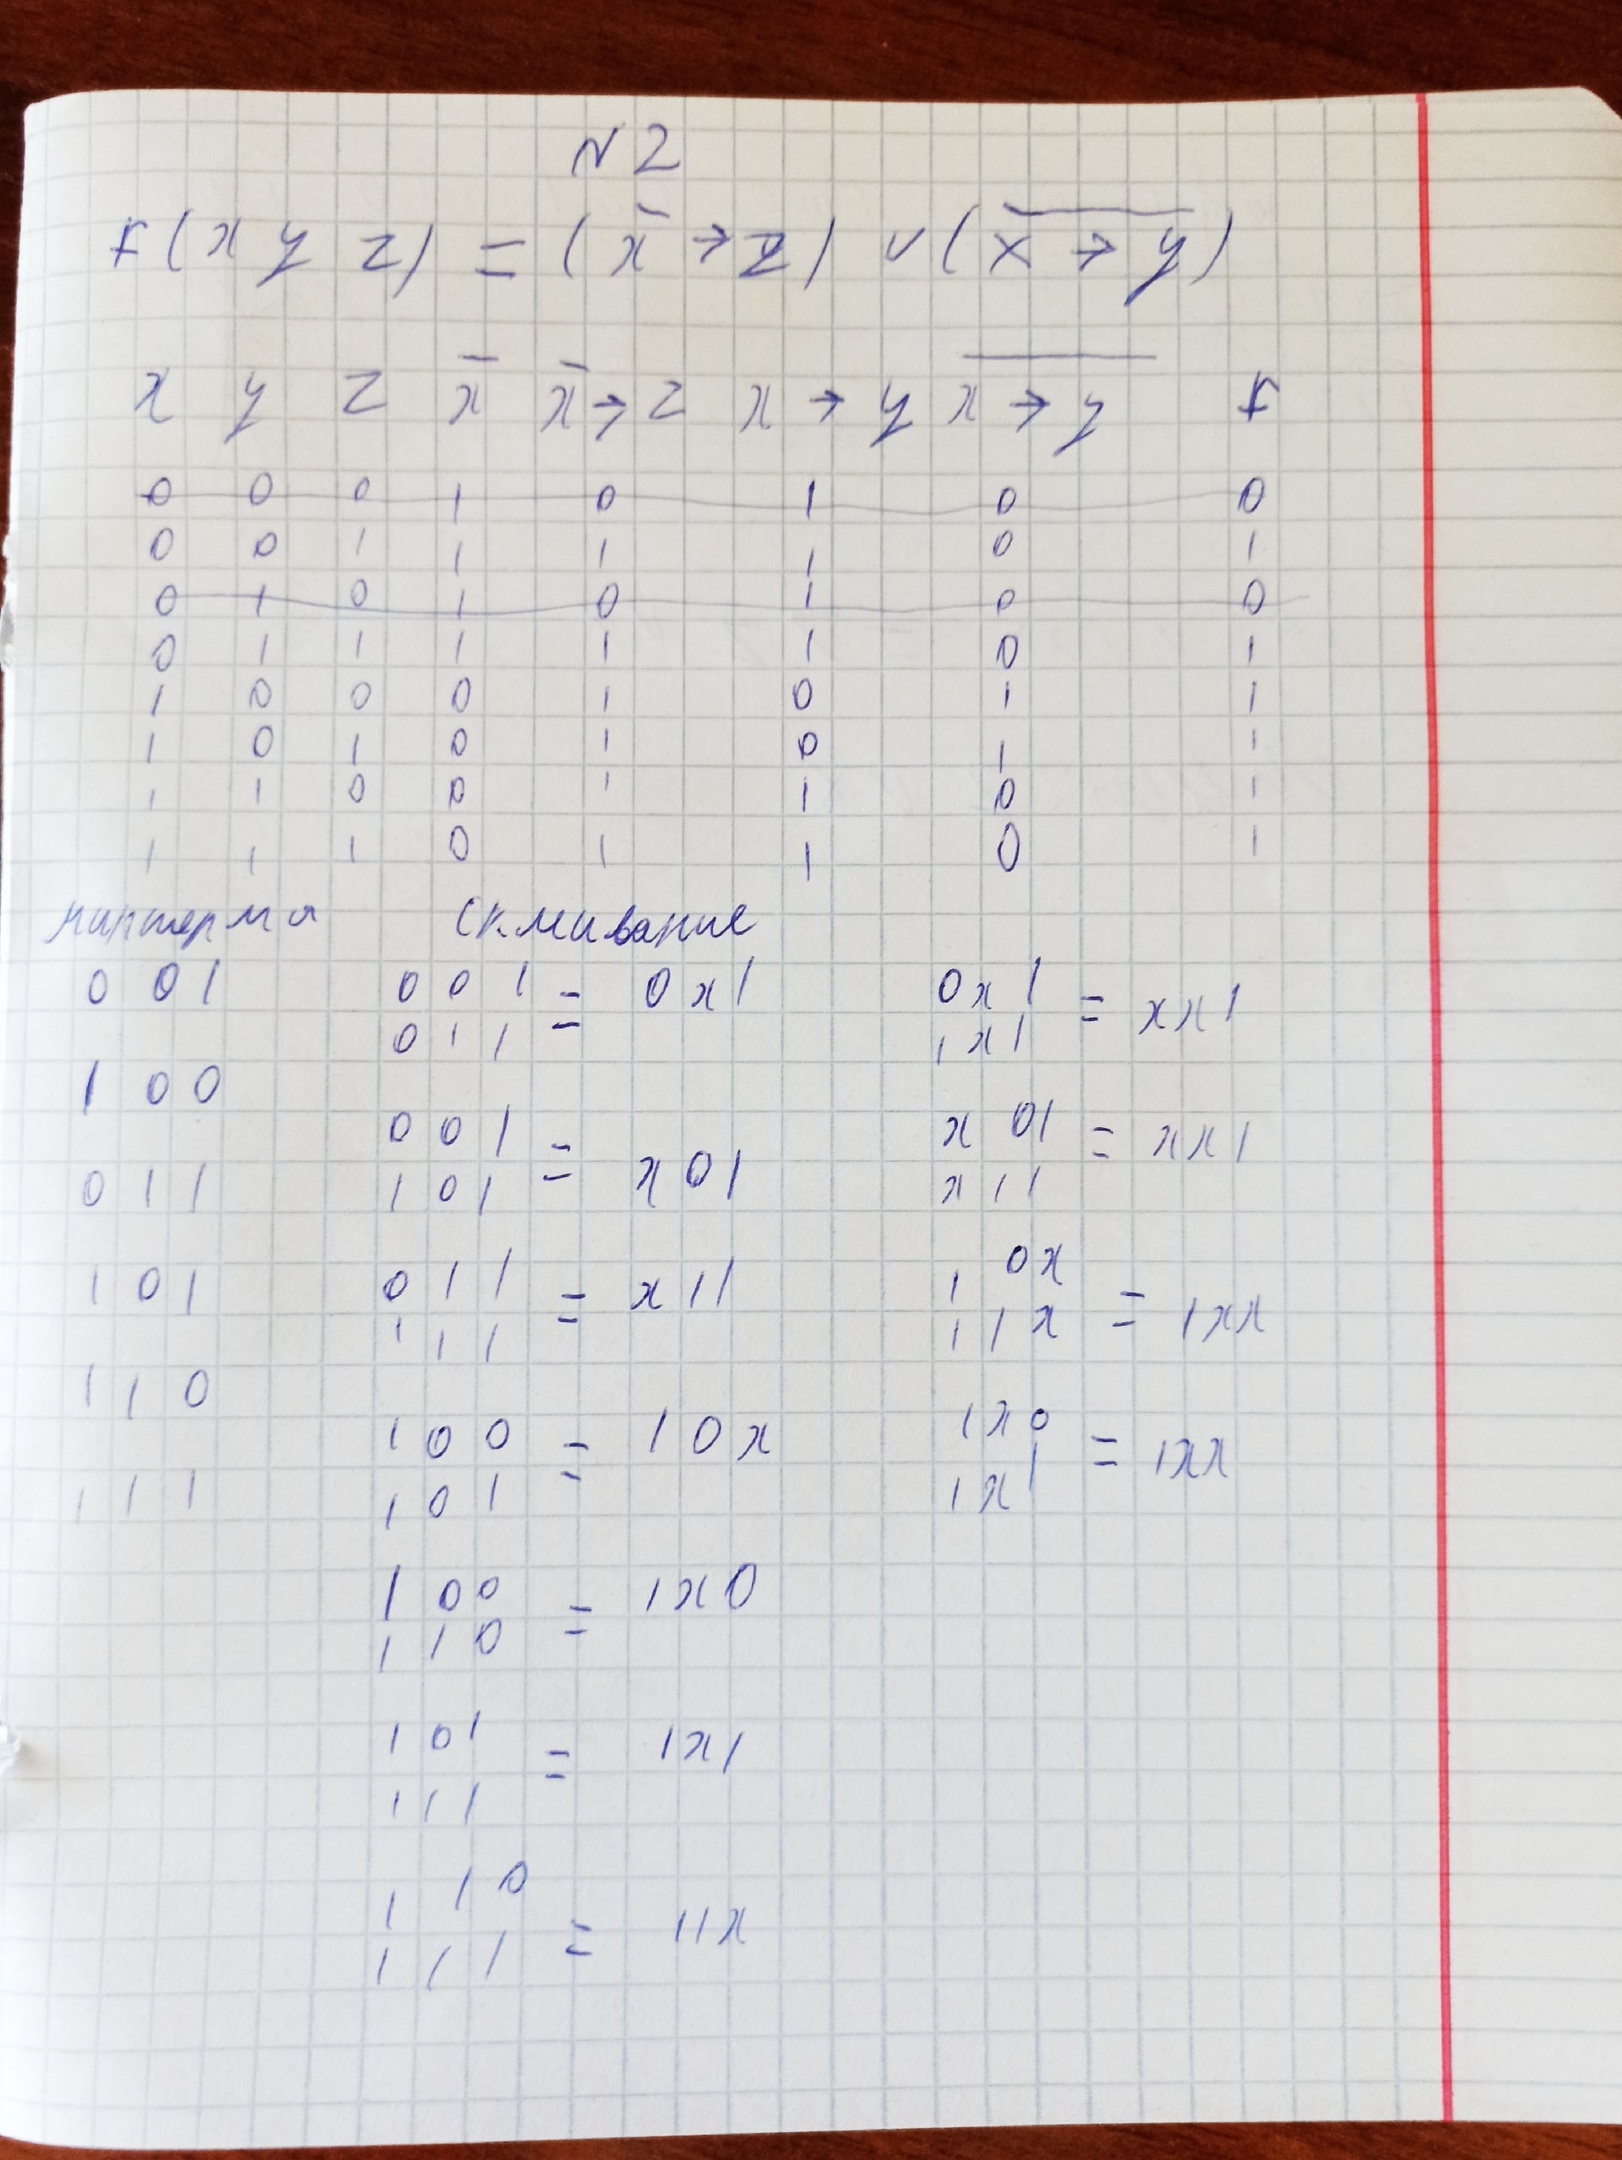 N 2
f(x y z) = (x̄ → z) ∨ (x̅ ̅→̅ ̅y̅)
x y z x̄ x̄→z x → y x̅ ̅→̅ ̅y̅ f
0 0 0 1 0 1 0 0
0 0 1 1 1 1 0 1
0 1 0 1 0 1 0 0
0 1 1 1 1 1 0 1
1 0 0 0 1 0 1 1
1 0 1 0 1 0 1 1
1 1 0 0 1 1 0 1
1 1 1 0 1 1 0 1
минтермы Склеивание
0 0 1
1 0 0
0 1 1
1 0 1
1 1 0
1 1 1
0 0 1
0 1 1 = 0x1
0 0 1
1 0 1 = x01
0 1 1
1 1 1 = x11
1 0 0
1 0 1 = 10x
1 0 0
1 1 0 = 1x0
1 0 1
1 1 1 = 1x1
1 1 0
1 1 1 = 11x
0x1
1x1 = xx1
x01
x11 = xx1
1 0x
1 1x = 1xx
1x0
1x1 = 1xx